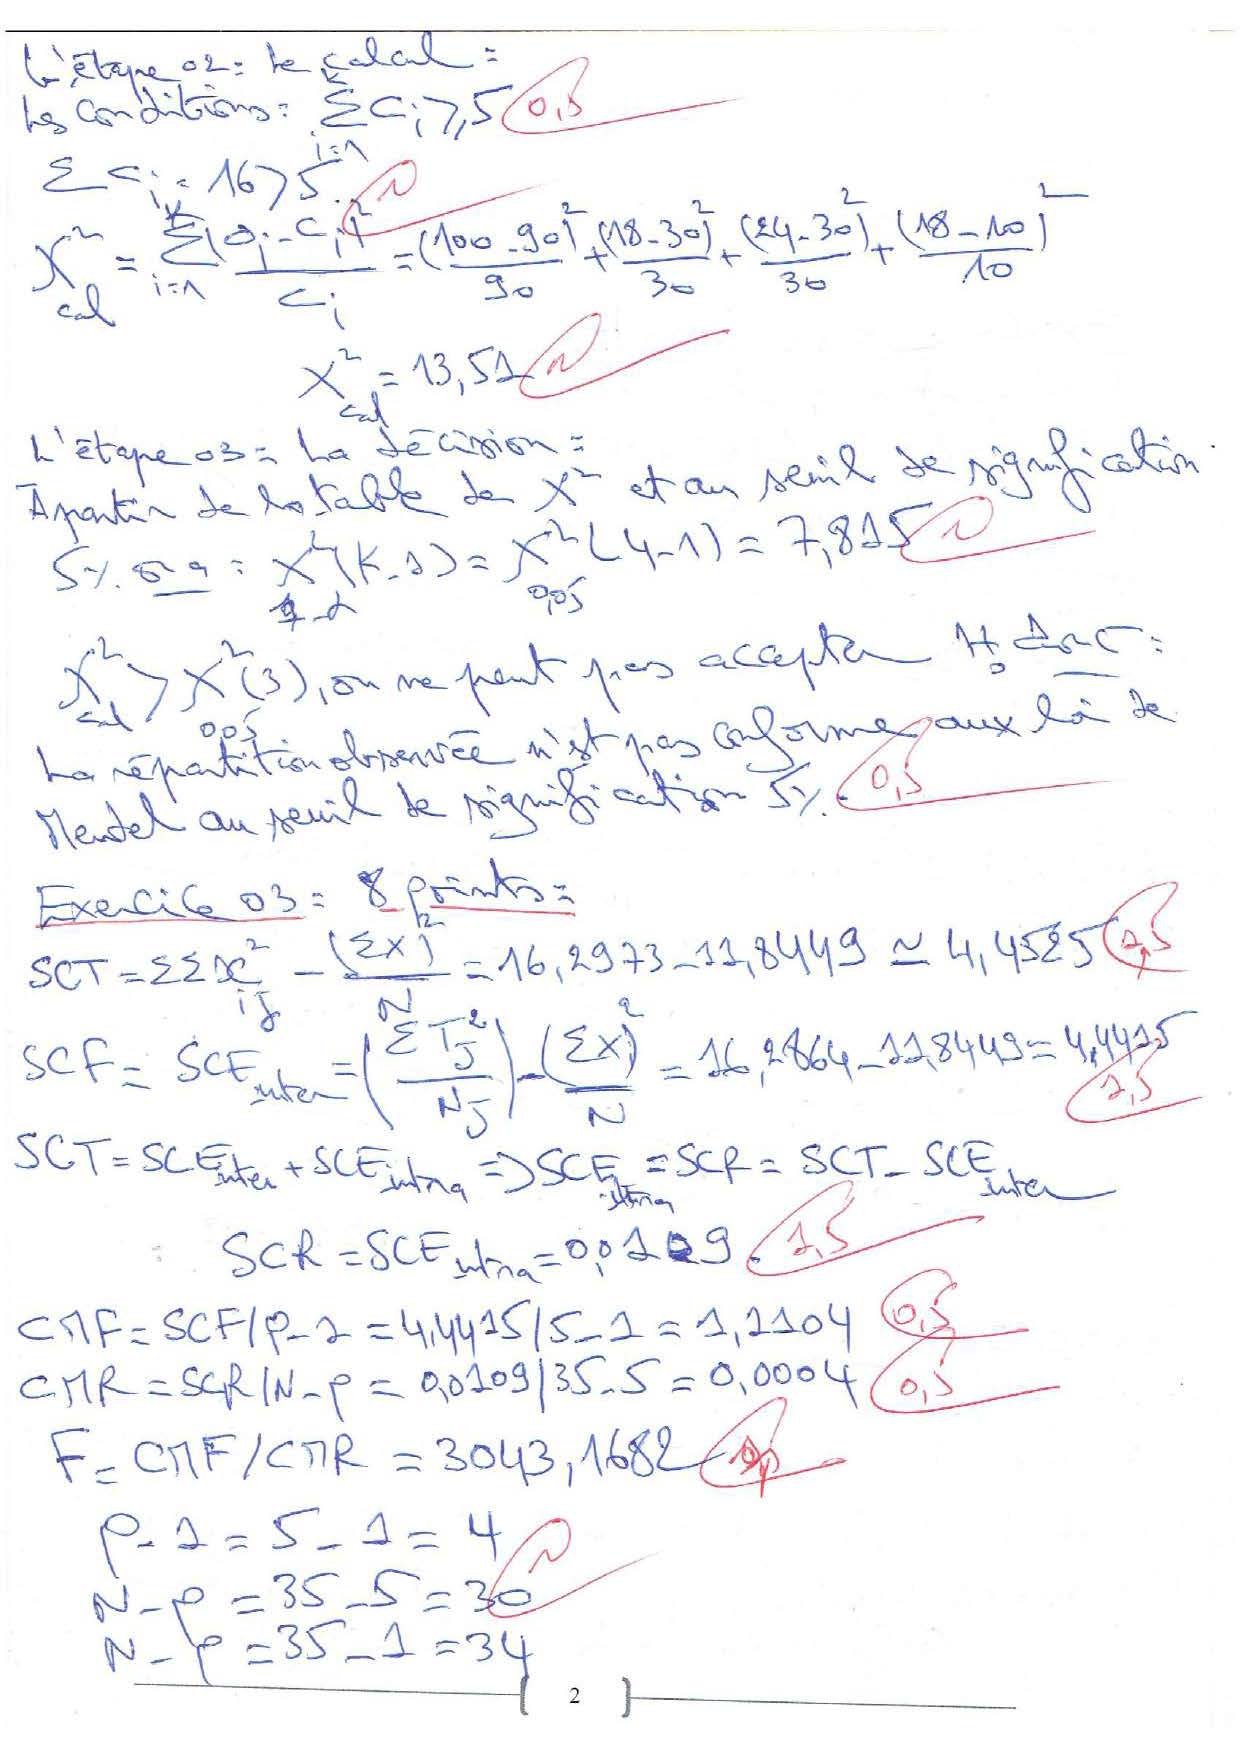 L'étape 02: Le calcul:
Les conditions: Σ^k_{i=1} C_i ≥ 5 0,5
Σ C_i = 16 > 5 1
X²_cal = Σ^k_{i=1} (O_i - C_i)² / C_i = (100-90)²/90 + (18-30)²/30 + (24-30)²/30 + (18-10)²/10
X²_cal = 13,51 1
L'étape 03: La décision:
À partir de la table de X² et au seuil de signification
5%. on a: X²_{1-α}(K-1) = X²_{0,05}(4-1) = 7,815 1
X²_cal > X²_{0,05}(3), on ne peut pas accepter H₀ donc:
La répartition observée n'est pas conforme aux loi de
Mendel au seuil de signification 5%. 0,5
Exercice 03: 8 points:
SCT = ΣΣx²_ij - (ΣX)²/N = 16,2973 - 11,8449 ≃ 4,4525 1,5
SCF = SCE_inter = (ΣT_J²/N_J) - (ΣX)²/N = 16,2864 - 11,8449 = 4,4415
1,5
SCT = SCE_inter + SCE_intra => SCE_intra = SCR = SCT - SCE_inter
SCR = SCE_intra = 0,0109. 1,5
CMF = SCF/p-1 = 4,4415/5-1 = 1,1104 0,5
CMR = SCR/N-p = 0,0109/35-5 = 0,0004 0,5
F = CMF/CMR = 3043,1682
p-1 = 5-1 = 4
N-p = 35-5 = 30 1
N-p = 35-1 = 34
2